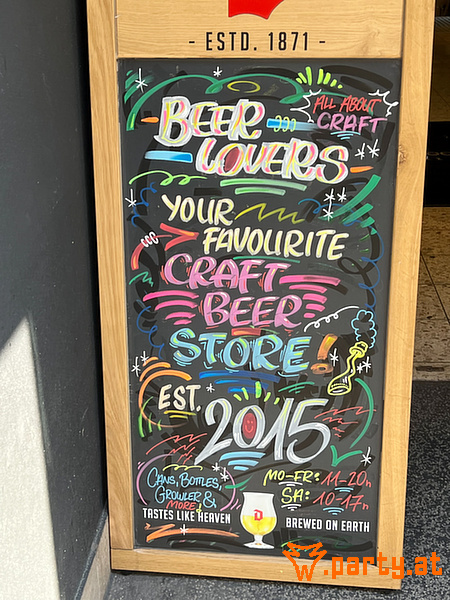 - ESTD. 1871 -
ALL ABOUT
CRAFT
BEER
LOVERS
YOUR
FAVOURITE
CRAFT
BEER
STORE!
EST.
2015
CANS, BOTLES,
GROWLER &
MORE,
MO-FR: 11-20h
SA: 10-17h
TASTES LIKE HEAVEN
D
BREWED ON EARTH
.party.at